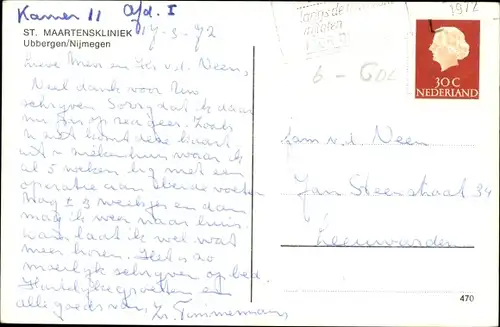 Kamer 11 Afd. I
ST. MAARTENSKLINIEK
Ubbergen/Nijmegen
17-3-72
Lieve Mevr en v.d. Neen,
Veel dank voor Uw
schrijven Sorry dat ik daar
op reageer. Zoals
U ziet komt deze kaart
uit ziekenhuis waar ik
al 5 weken lig met een
operatie aan beide voeten
Nog ± 3 weekjes en dan
mag ik weer naar huis.
Dan laat ik wel wat
meer horen. Het is zo
moeilijk schrijven op bed.
Hartelijke groeten en
alle goeds van, Zr. Timmermans
1972
30 C
NEDERLAND
Fam v.d. Neen
Jan Steenstraat 34
Leeuwarden
470